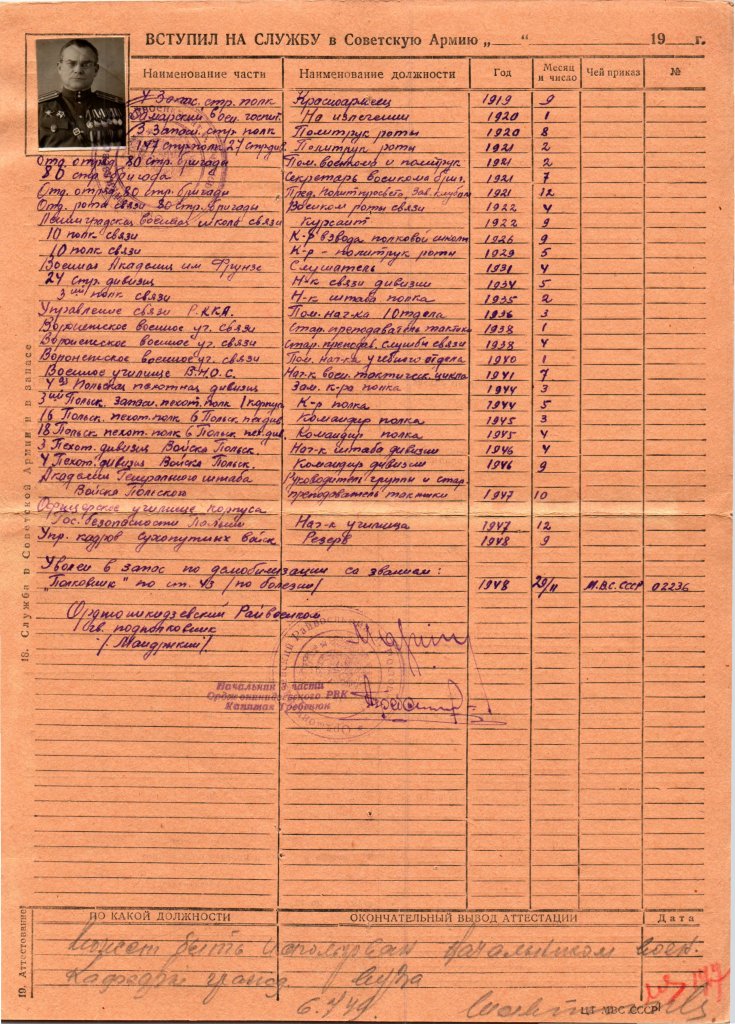 ВСТУПИЛ НА СЛУЖБУ в Советскую Армию „ “ 19 г.
Наименование части Наименование должности Год Месяц и число Чей приказ №
4 Запас. стр. полк Красноармеец 1919 9
госпит. На излечении 1920 1
3 Запасн. стр. полк Политрук роты 1920 8
147 стр. полк 27 стр. див. Политрук роты 1921 2
Отд. отряд 80 стр. бригады Пом. военкома и политрук 1921 2
80 стр. бригада Секретарь военкома бриг. 1921 7
Отд. отряд 80 стр. бригады Пред. политпросвета, Зав. клубом 1921 12
Отд. рота связи 80 стр. бригады Военком роты связи 1922 4
Ленинградская военная школа связи Курсант 1922 9
10 полк связи К-р взвода полковой школы 1926 9
10 полк связи К-р – политрук роты 1929 5
Военная Академия им Фрунзе Слушатель 1931 4
24 стр. дивизия Н-к связи дивизии 1934 5
3ий полк связи Н-к штаба полка 1935 2
Управление связи Р.ККА. Пом. нач-ка 10 отдела 1936 3
Воронежское военное уч. связи Стар. преподаватель тактики 1938 1
Воронежское военное уч. связи Стар. препода. службы связи 1938 4
Воронежское военное уч. связи Пом. нач-ка учебного отдела 1940 1
Военное училище В.Н.О.С. Нач-к воен. тактическ. цикла 1941 7
4ая Польская пехотная дивизия Зам. к-ра полка 1944 3
3ий Польск. запасн. пехот. полк 1 корпуса К-р полка 1944 5
16 Польск. пехот. полк 6 Польск. пех. див. Командир полка 1945 3
18 Польск. пехот. полк 6 Польск. пех. див. Командир полка 1945 4
3 Пехот. дивизия Войска Польск. Нач-к штаба дивизии 1946 4
4 Пехот. дивизия Войска Польск. Командир дивизии 1946 9
Академия Генерального штаба Руководитель группы и стар.
Войска Польского преподаватель тактики 1947 10
Офицерское училище корпуса
Гос. безопасности Польши Нач-к училища 1947 12
Упр. кадров сухопутных войск Резерв 1948 9
Уволен в запас по демобилизации со званием:
„Полковник“ по ст. 43 /по болезни/ 1948 29/11 М.В.С. СССР 02236
Орджоникидзевский Райвоенком
гв. подполковник
Начальник 3 части
Орджоникидзевского РВК
Капитан Требенюк
18. Служба в Советской Армии и в запасе
19. Аттестование
ПО КАКОЙ ДОЛЖНОСТИ ОКОНЧАТЕЛЬНЫЙ ВЫВОД АТТЕСТАЦИИ Дата
Может быть использован начальником воен.
кафедры гражд. вуза
ЦТ МВС СССР